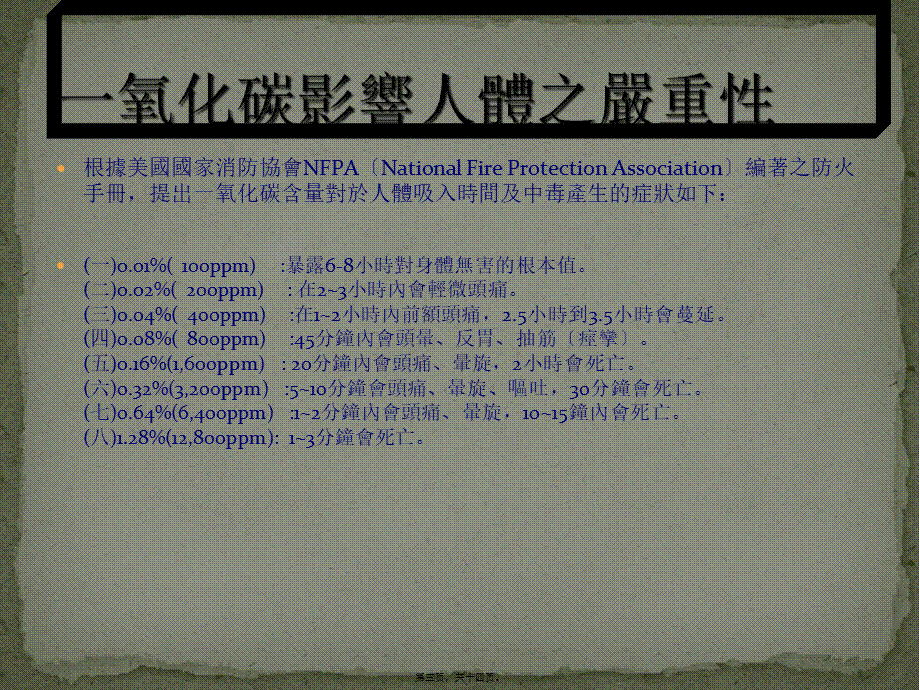 一氧化碳影響人體之嚴重性
根據美國國家消防協會NFPA〔National Fire Protection Association〕編著之防火
手冊，提出一氧化碳含量對於人體吸入時間及中毒產生的症狀如下：
(一)0.01%( 100ppm) :暴露6-8小時對身體無害的根本值。
(二)0.02%( 200ppm) : 在2~3小時內會輕微頭痛。
(三)0.04%( 400ppm) :在1~2小時內前額頭痛，2.5小時到3.5小時會蔓延。
(四)0.08%( 800ppm) :45分鐘內會頭暈、反胃、抽筋〔痙攣〕。
(五)0.16%(1,600ppm) : 20分鐘內會頭痛、暈旋，2小時會死亡。
(六)0.32%(3,200ppm) :5~10分鐘會頭痛、暈旋、嘔吐，30分鐘會死亡。
(七)0.64%(6,400ppm) :1~2分鐘內會頭痛、暈旋，10~15鐘內會死亡。
(八)1.28%(12,800ppm): 1~3分鐘會死亡。
第三頁，共十四頁。